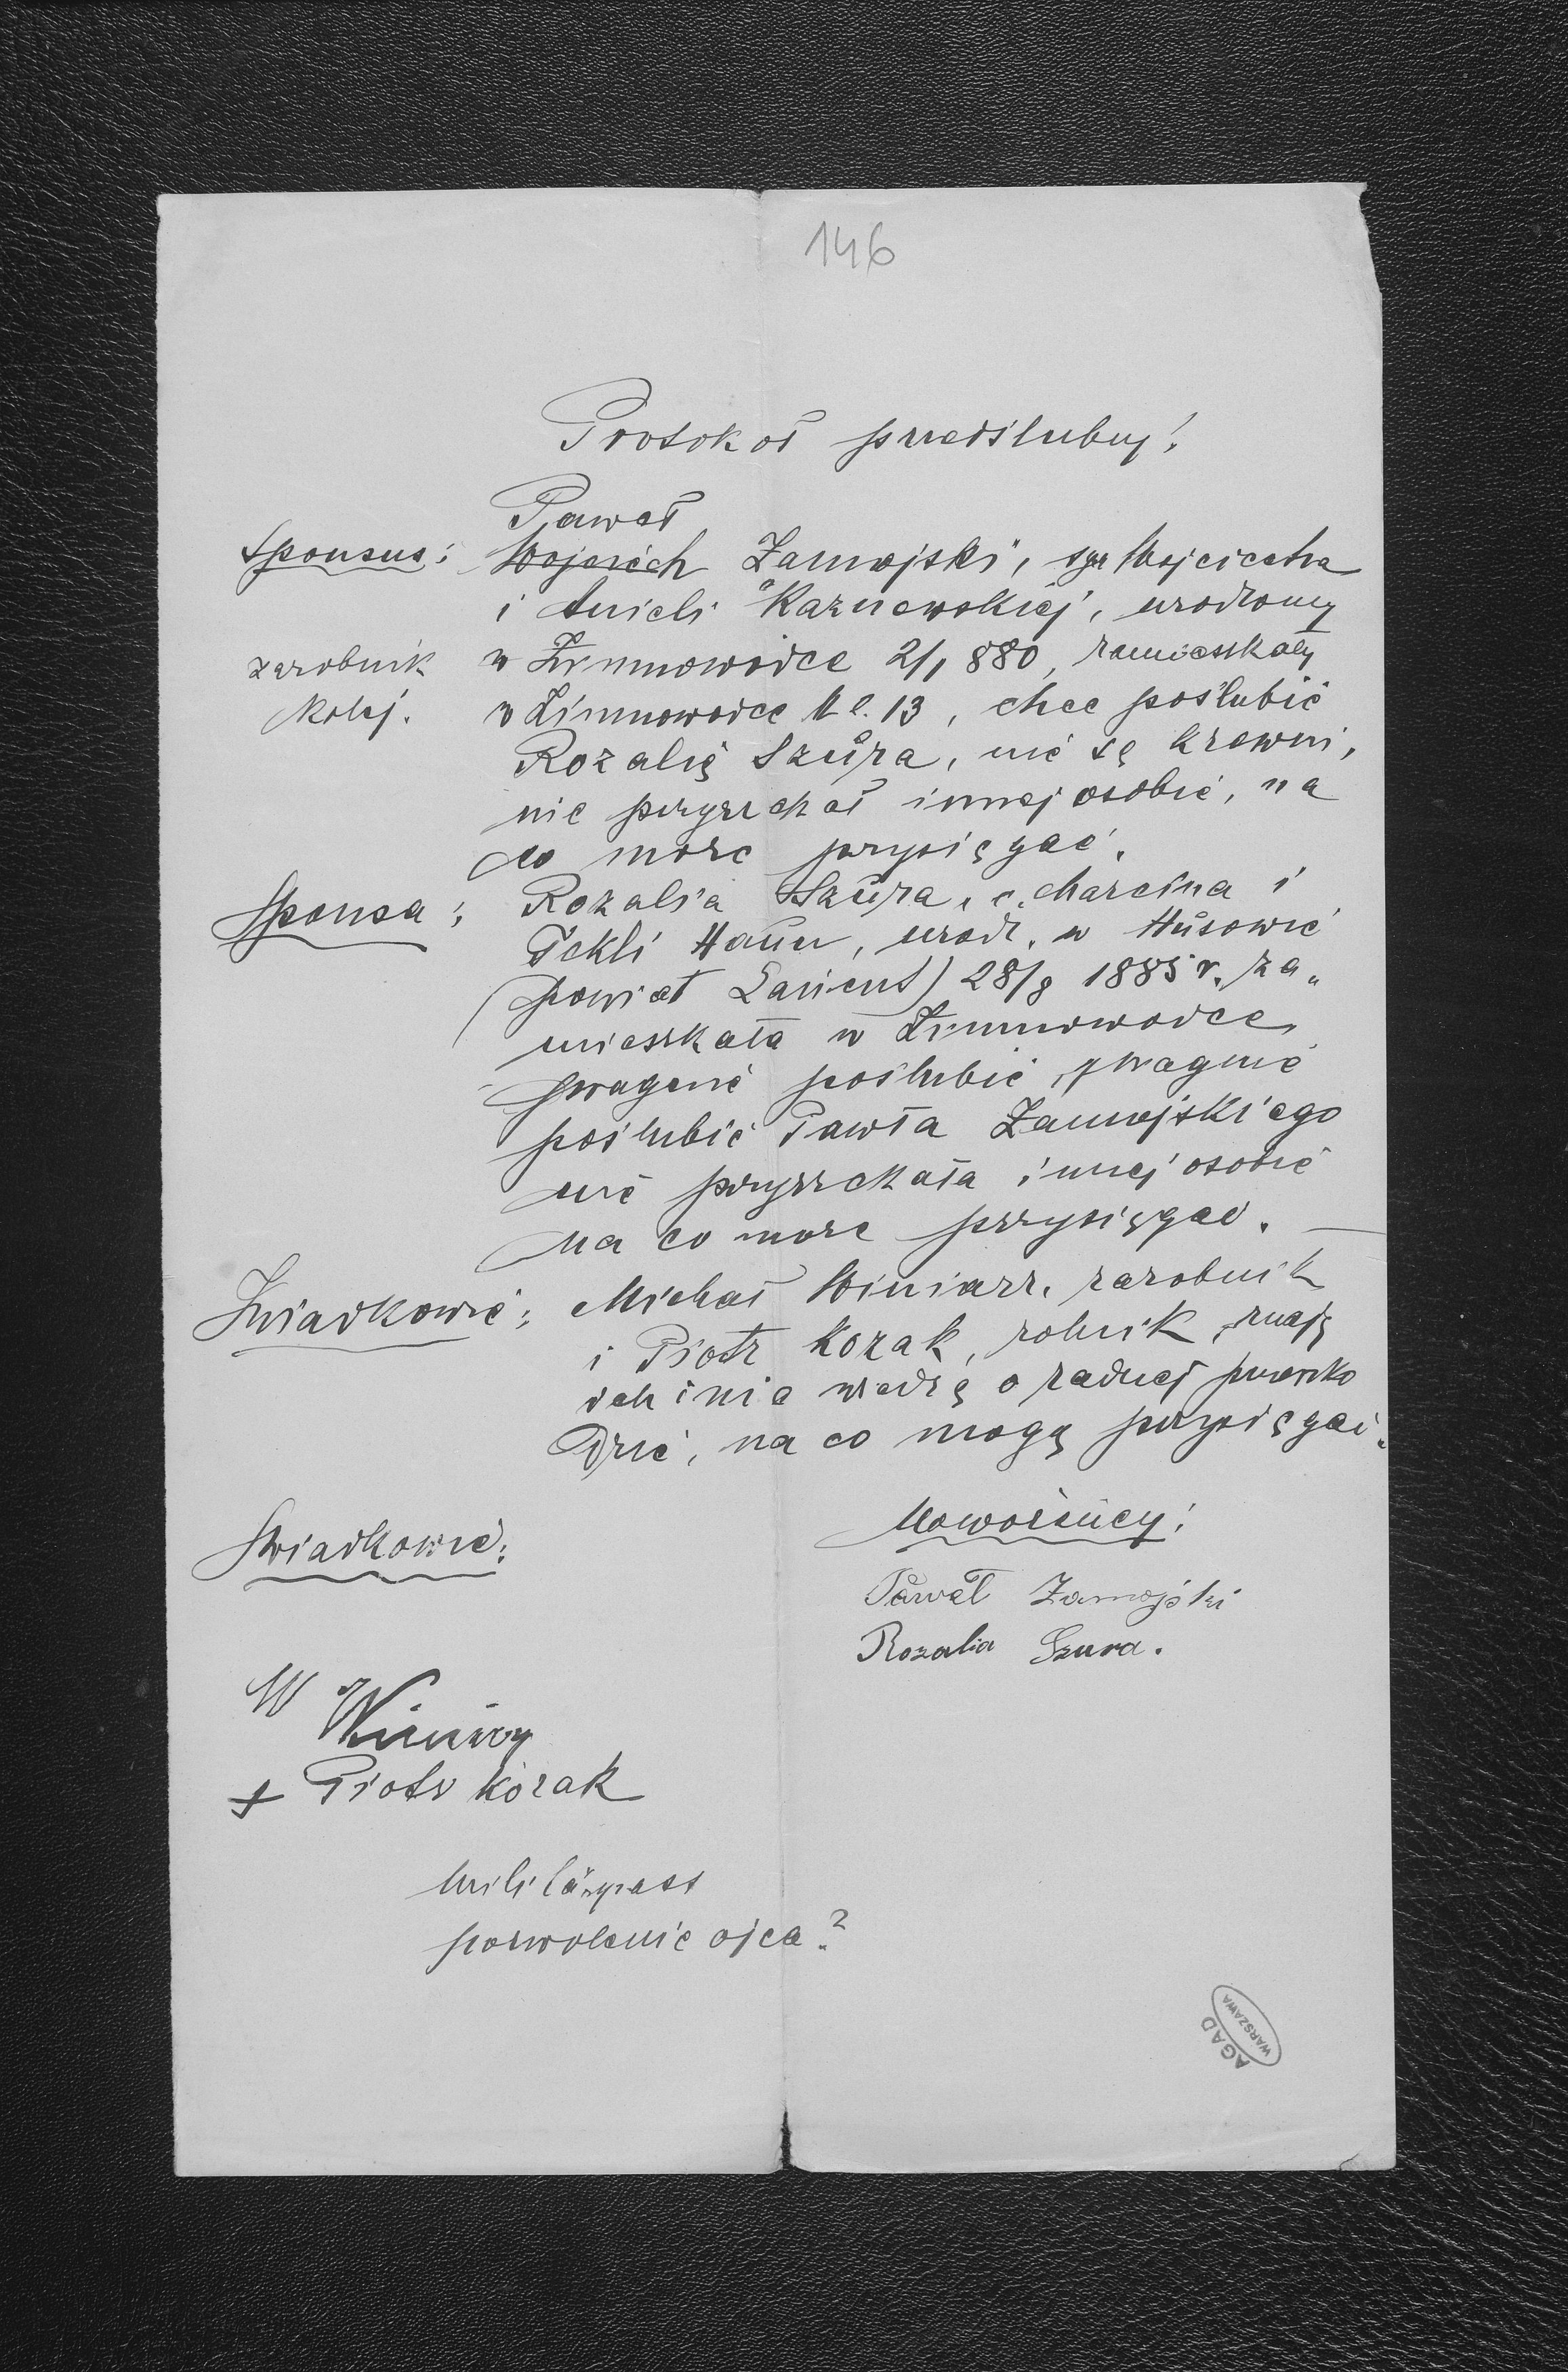 146
Protokoł przedślubny!
Paweł
Sponsus: Wojciech Zamojski, syn Wojciecha
i Anieli Kaznowskiej, urodzony
zarobnik w Zimnowódce 2/1 880, zamieszkały
kolej. w Zimnowodce N l. 13, chce poślubić
Rozalię Szŭra, nie są krewni,
nie przyrzekał innej osobie, na
co może przysięgać.
Sponsa: Rozalia Szŭra, c. Marcina i
Tekli Haŭn, urodz. w Hŭsowie
(powiat Łańcut) 28/8 1885 r. za„
mieszkała w Zimnowodce,
pragnie poślubić, pragnie
poślubić Pawła Zamojskiego
nie przyrzekała innej osobie
na co może przysięgać. —
Świadkowie: Michał Winiarz, zarobnik
i Piotr Kozak, rolnik, znają
ich i nie wiedzą o żadnej przeszko
dzie, na co mogą przysięgać.
Nowożeńcy:
Świadkowie:
Paweł Zamojski
Rozalia Szura.
M
+ Piotr Kozak
Militärpass
pozwolenie ojca?
AGAD
WARSZAWA